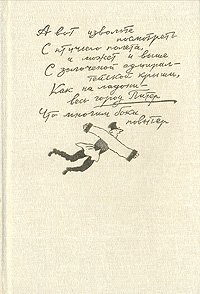 А вот извольте
посмотреть
С птичьего полета,
и может и выше
С золоченой адмирал-
тейской крыши,
Как на ладони
весь город Питер
Что многим боки
повытер